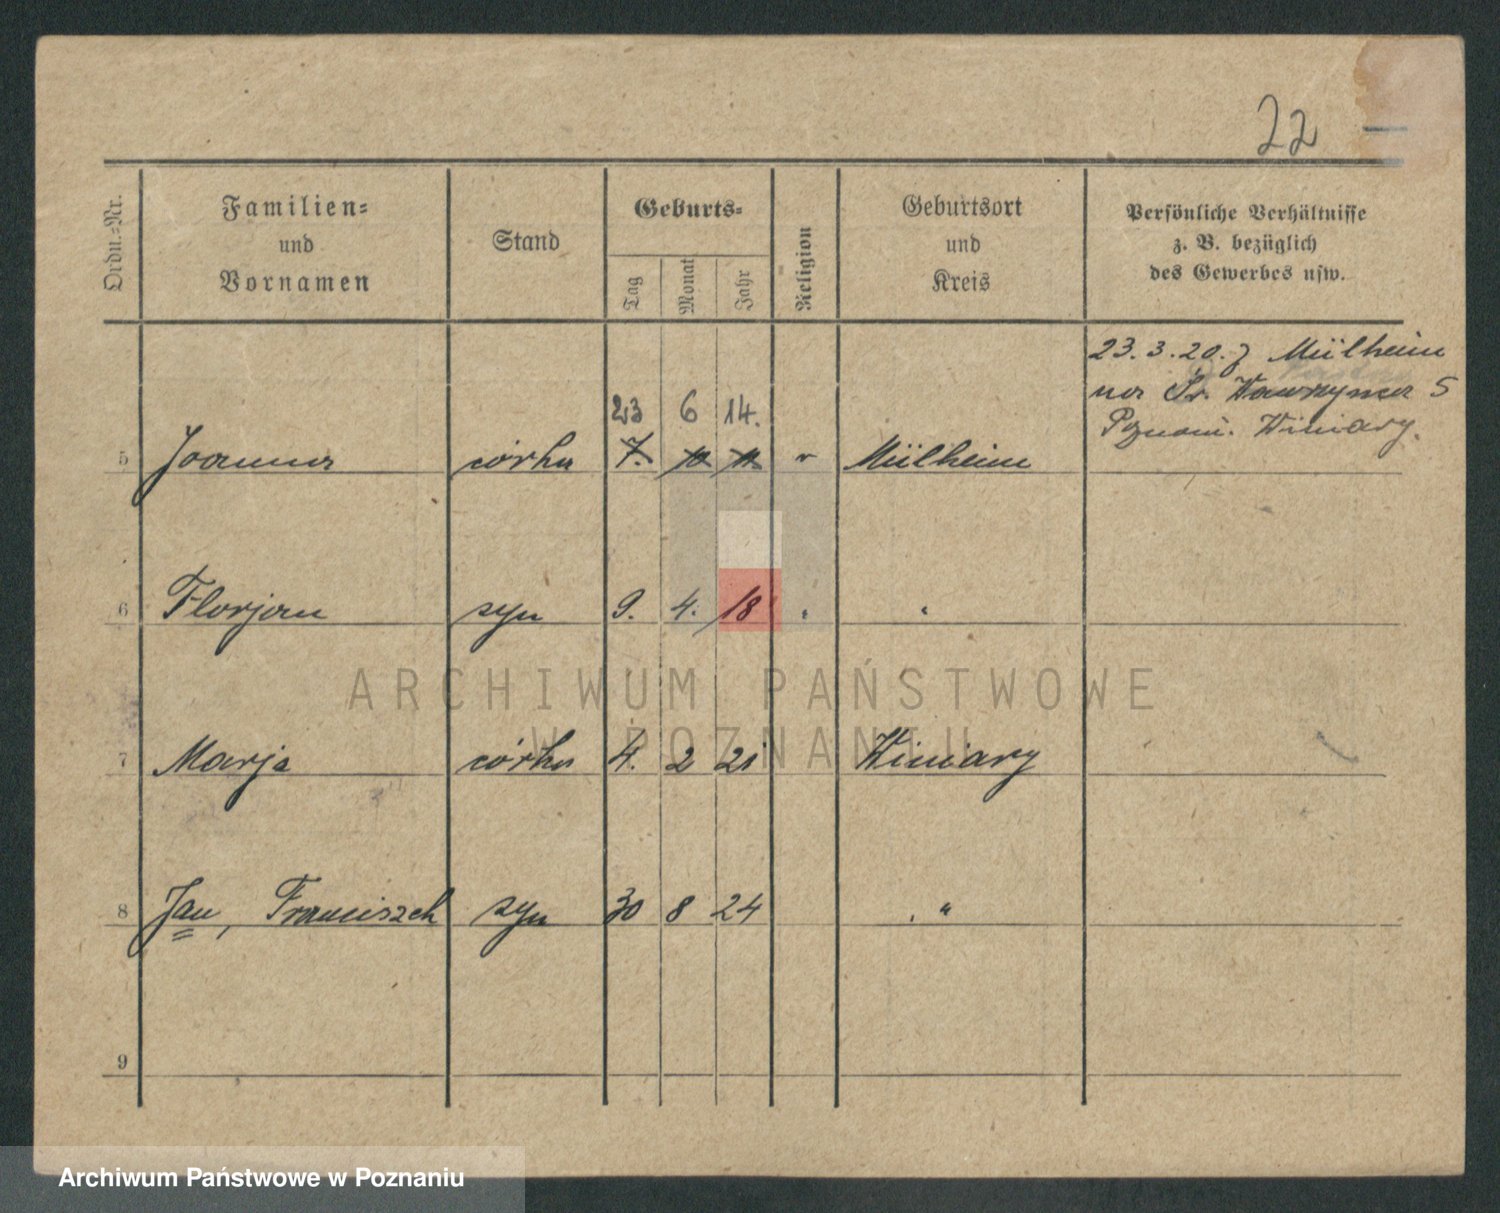 22
Ordn.-Nr.
Familien-
und
Vornamen
Stand
Geburts-
Tag
Monat
Jahr
Religion
Geburtsort
und
Kreis
Persönliche Verhältnisse
z. B. bezüglich
des Gewerbes usw.
23.3.20. z Mülheim
na Św. Wawrzyńca 5
Poznań. Winiary.
23 6 14.
5 Joanna córka 7. Mülheim
6 Florjan syn 9. 4. 18 "
ARCHIWUM PAŃSTWOWE
W POZNANIU
7 Marja córka 4. 2 21 Winiary
8 Jan, Franciszek syn 30 8 24 "
9
Archiwum Państwowe w Poznaniu